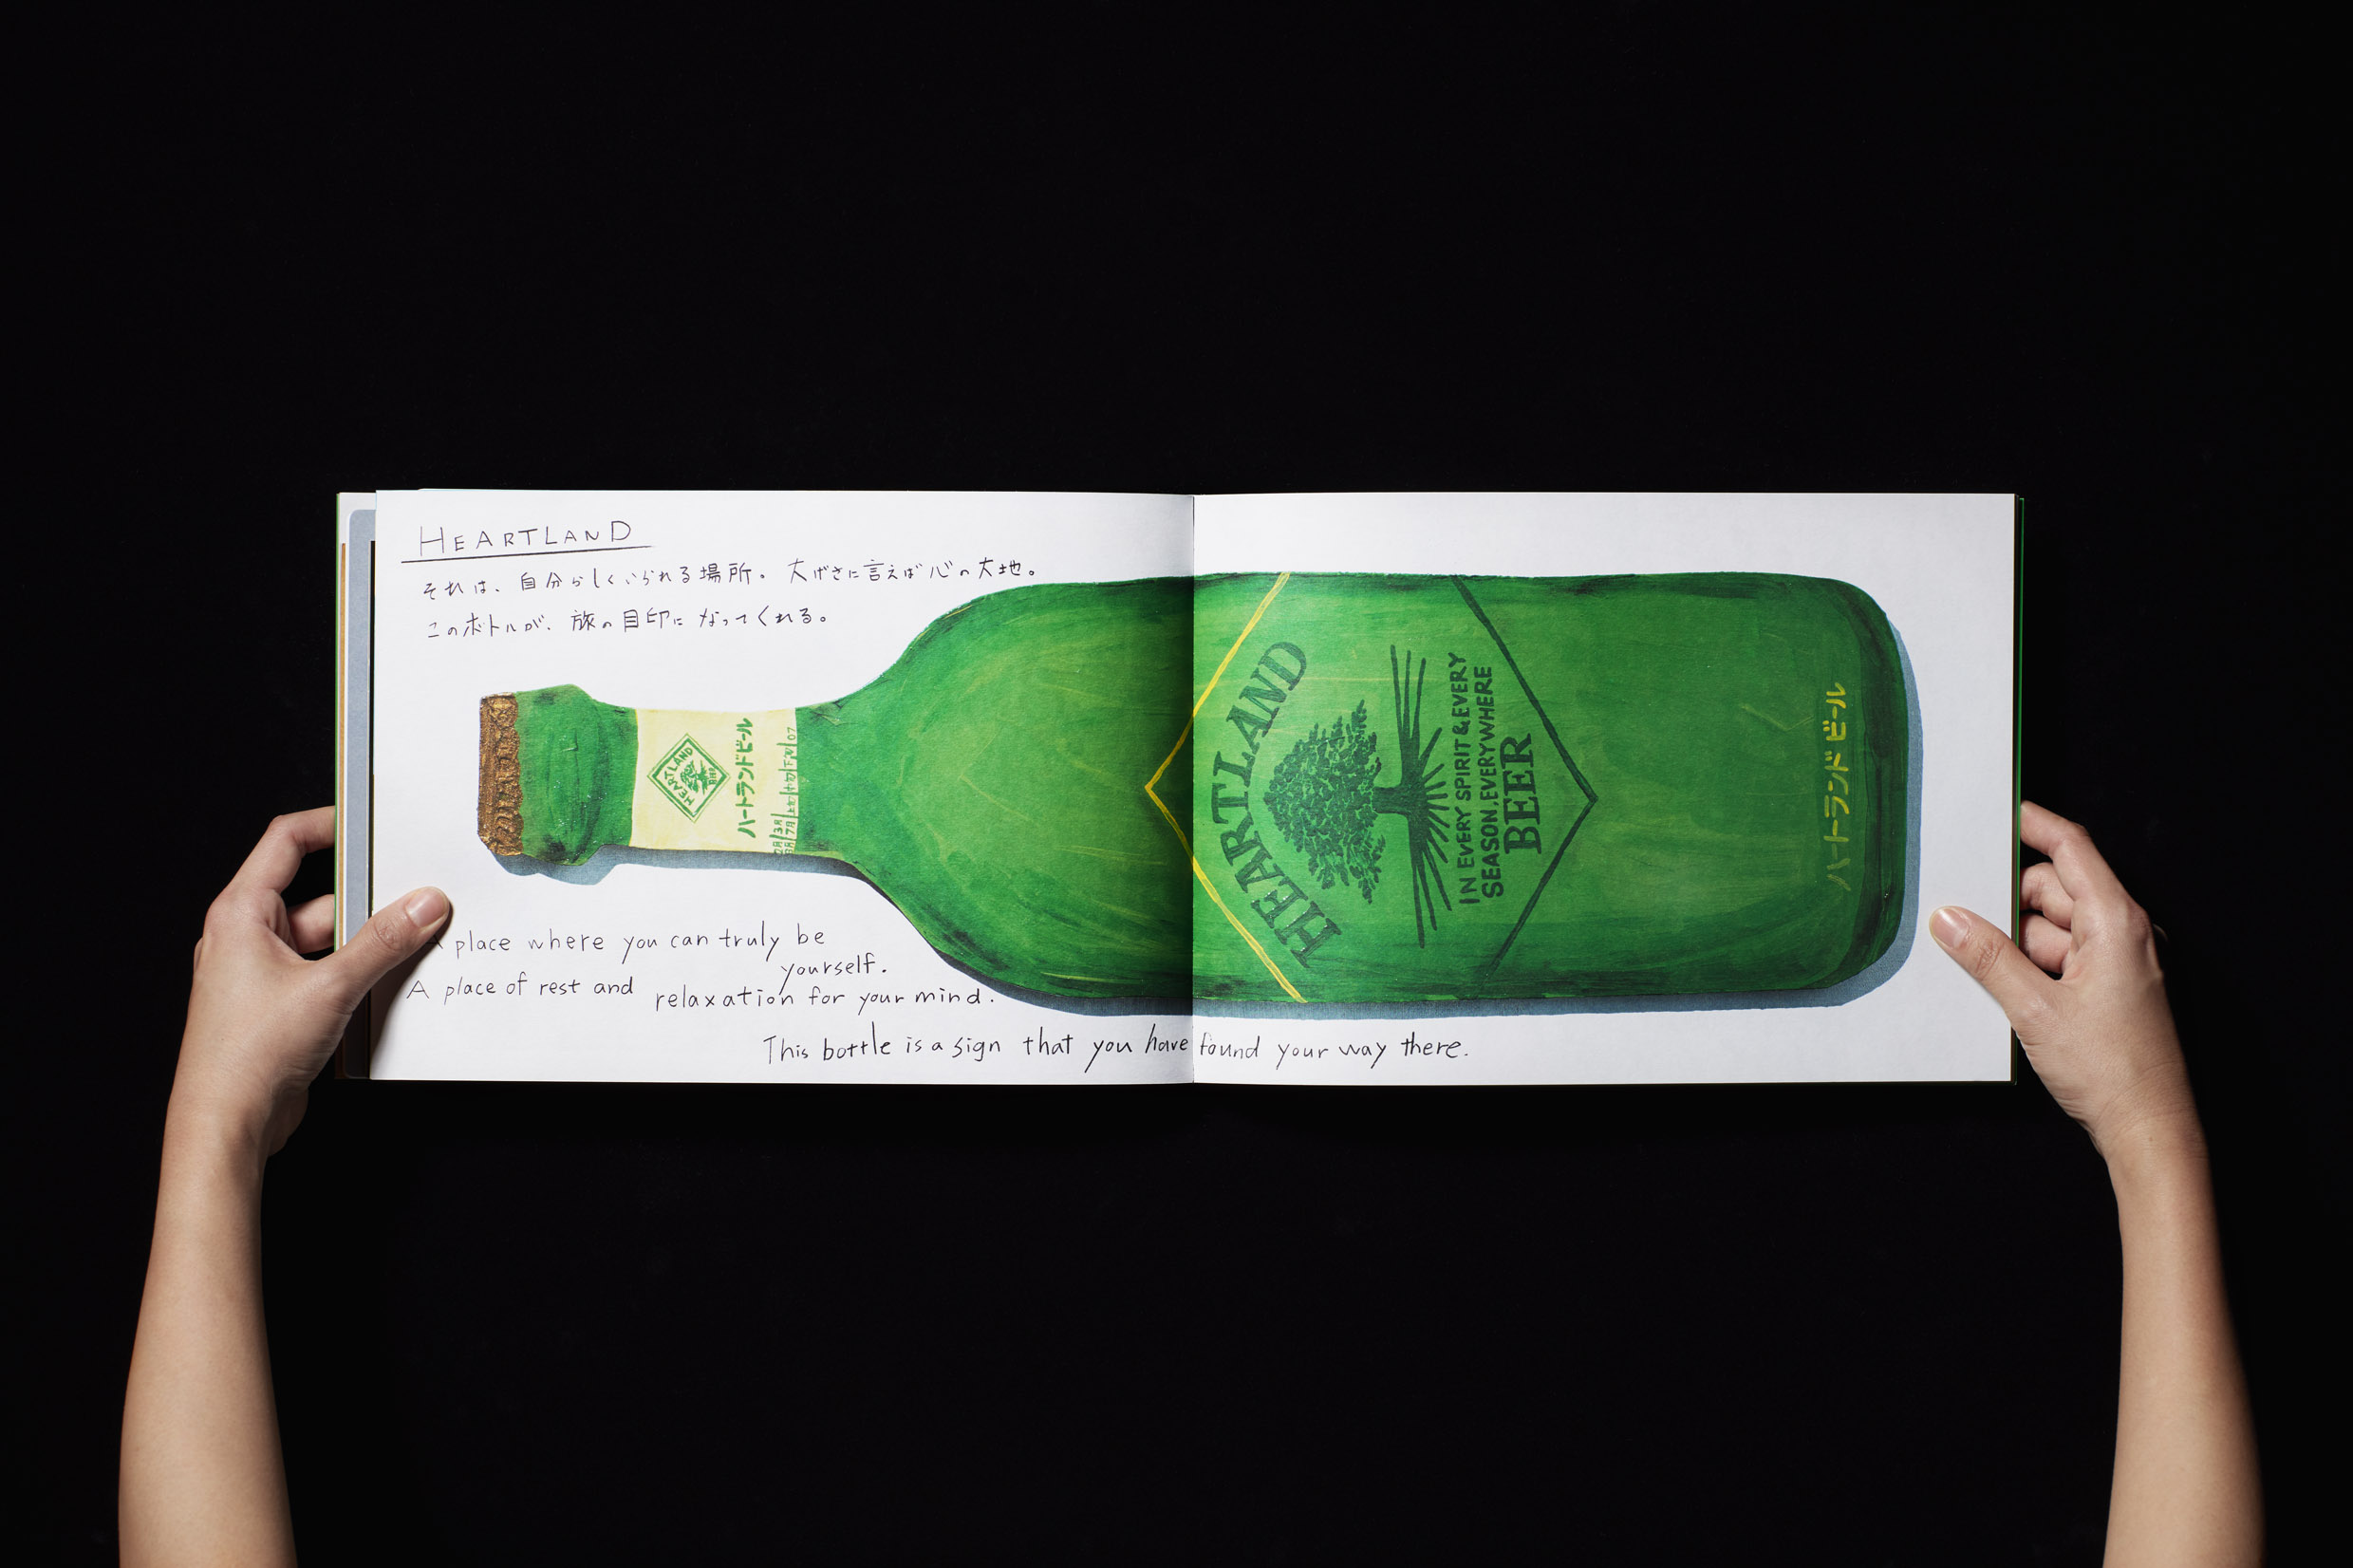 HEARTLAND
それは、自分らしくいられる場所。大げさに言えば心の大地。
このボトルが、旅の目印になってくれる。
HEARTLAND
BEER
ハートランドビール
HEARTLAND
IN EVERY SPIRIT & EVERY
SEASON, EVERYWHERE
BEER
ハートランドビール
A place where you can truly be
yourself.
A place of rest and relaxation for your mind.
This bottle is a sign that you have found your way there.